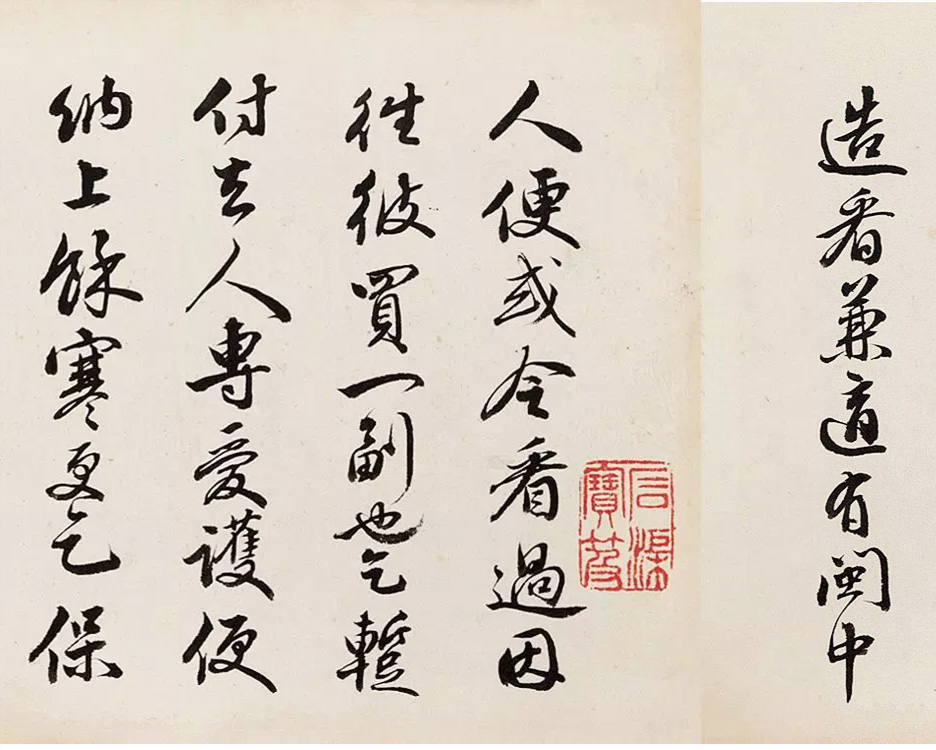 造看兼適有閩中
石渠寶笈
人便或令看過因
往彼買一副也乞暫
付去人專愛護便
納上餘寒更乞保